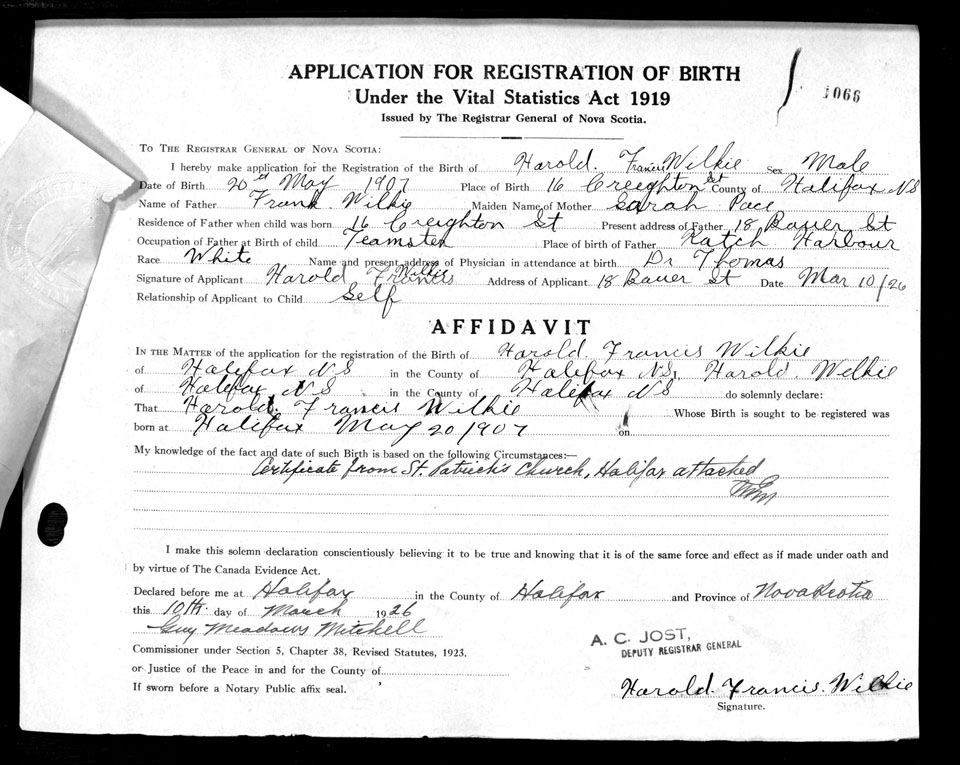 APPLICATION FOR REGISTRATION OF BIRTH
1066
Under the Vital Statistics Act 1919
Issued by The Registrar General of Nova Scotia.
TO THE REGISTRAR GENERAL OF NOVA SCOTIA:
I hereby make application for the Registration of the Birth of Harold. Francis Wilkie Sex Male
Date of Birth 20st May 1907 Place of Birth 16 Creighton St County of Halifax NS
Name of Father Frank Wilkie Maiden Name of Mother Sarah Pace
Residence of Father when child was born 16 Creighton St Present address of Father 18 Bauer St
Occupation of Father at Birth of child Teamster Place of birth of Father Katch Harbour
Race White Name and present address of Physician in attendance at birth Dr Thomas
Signature of Applicant Harold Francis Wilkie Address of Applicant 18 Bauer St Date Mar 10/26
Relationship of Applicant to Child Self
AFFIDAVIT
IN THE MATTER of the application for the registration of the Birth of Harold. Francis Wilkie
of Halifax NS in the County of Halifax NS, I Harold. Welkie
of Halifax NS in the County of Halifax NS do solemnly declare:
That Harold. Francis Wilkie Whose Birth is sought to be registered was
born at Halifax May 20/1907 on
My knowledge of the fact and date of such Birth is based on the following Circumstances:—
Certificate from St. Patrick's Church, Halifax attached
I make this solemn declaration conscientiously believing it to be true and knowing that it is of the same force and effect as if made under oath and
by virtue of The Canada Evidence Act.
Declared before me at Halifax in the County of Halifax and Province of Nova Scotia
this 10th. day of March 1926
Guy Meadows Mitchell
Commissioner under Section 5, Chapter 38, Revised Statutes, 1923.
or Justice of the Peace in and for the County of
If sworn before a Notary Public affix seal.
A. C. JOST,
DEPUTY REGISTRAR GENERAL
Harold. Francis. Wilkie
Signature.